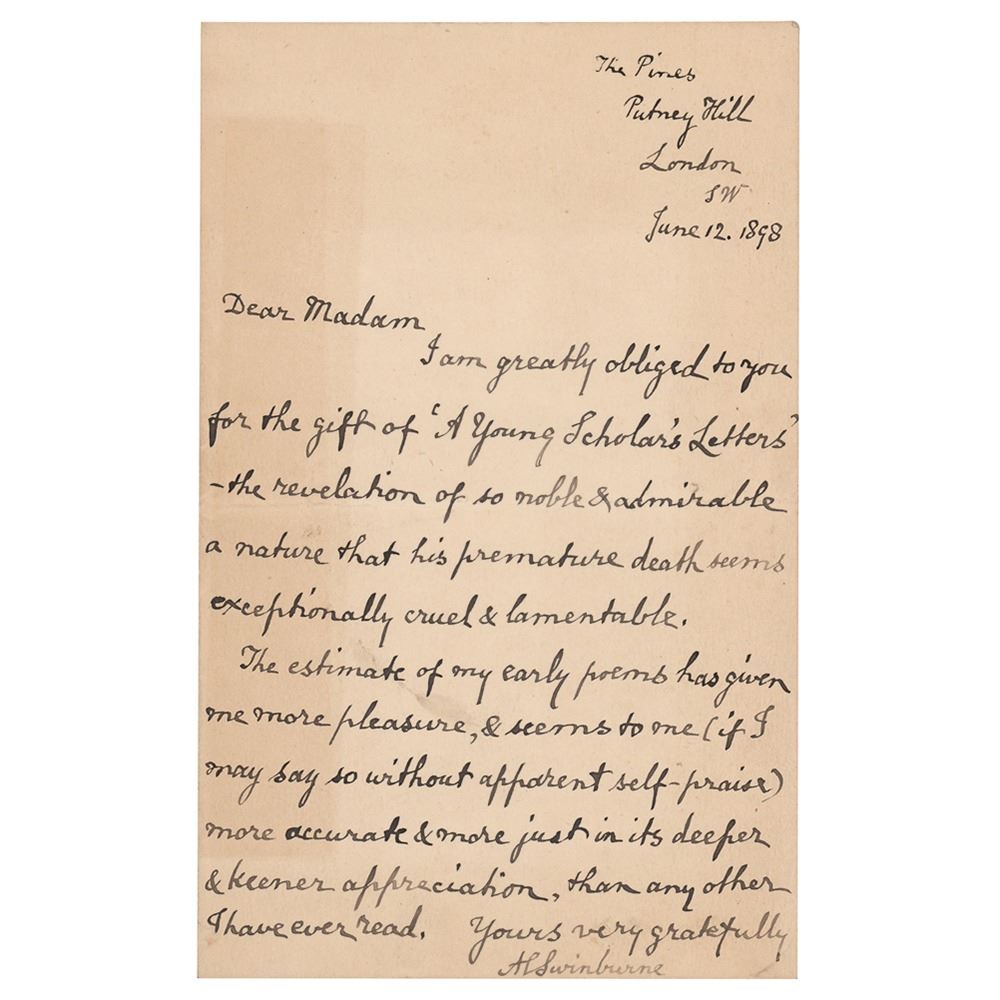 The Pines
Putney Hill
London
SW
June 12. 1898
Dear Madam
I am greatly obliged to you
for the gift of 'A Young Scholar's Letters'
- the revelation of so noble & admirable
a nature that his premature death seems
exceptionally cruel & lamentable.
The estimate of my early poems has given
me more pleasure, & seems to me (if I
may say so without apparent self-praise)
more accurate & more just in its deeper
& keener appreciation, than any other
I have ever read. Yours very gratefully
ALSwinburne